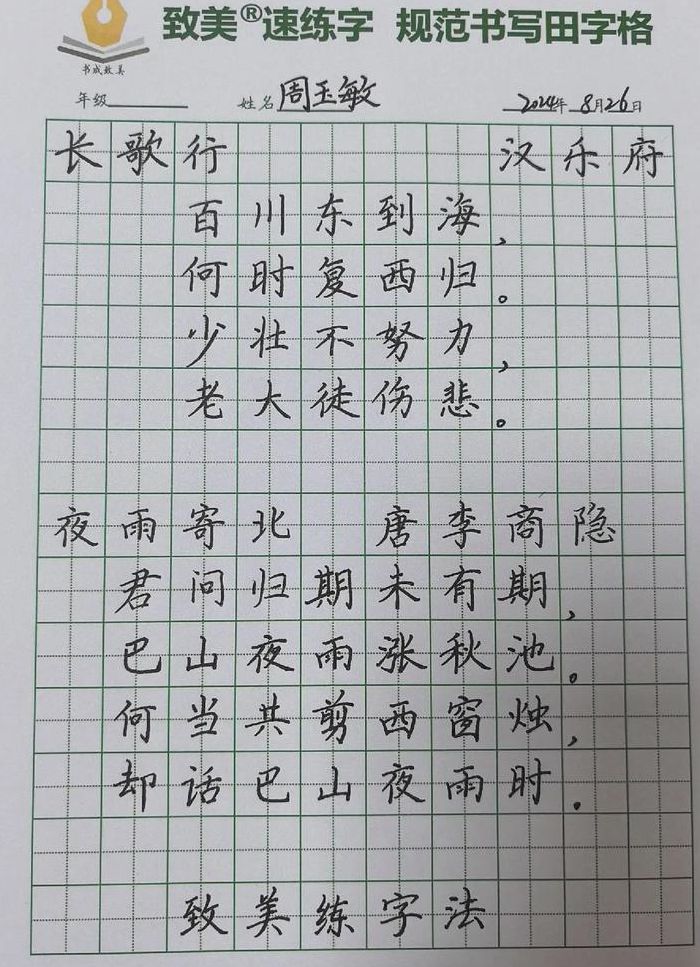 致美®速练字 规范书写田字格
书成致美
年级 姓名 周玉敏 2024年 8月26日
长歌行 汉乐府
百川东到海,
何时复西归。
少壮不努力,
老大徒伤悲。
夜雨寄北 唐李商隐
君问归期未有期,
巴山夜雨涨秋池。
何当共剪西窗烛,
却话巴山夜雨时.
致美练字法